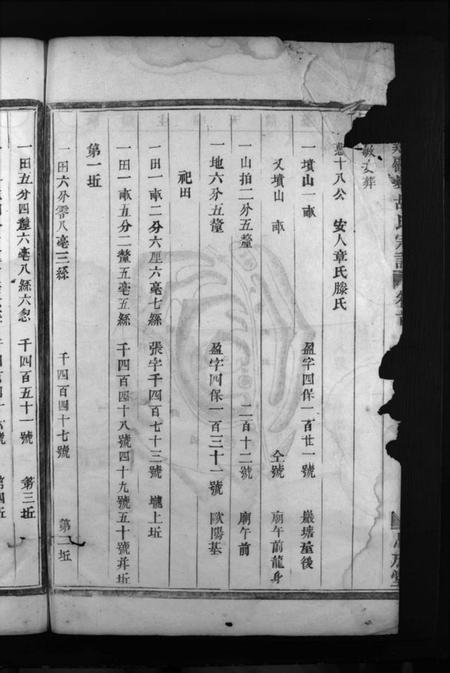 十八公 安人章氏滕氏
一墳山一畝 盈字四保一百廿一號 巖塘塢後
又墳山畝 仝號 廟午前龍身
一山拍二分五釐 二百十二號 廟午前
一地六分五釐 盈字四保一百三十一號 歐陽基
祀田
一田一畝二分六厘六毫七絲 張字千四百七十三號 壠上坵
一田一畝五分二釐五毫五絲 千四百四十八號四十九號五十號幷坵
第一坵
一田六分零八毫三絲 千四百四十七號 第二坵
一田五分四釐六毫八絲六忽 千四百五十一號 第三坵